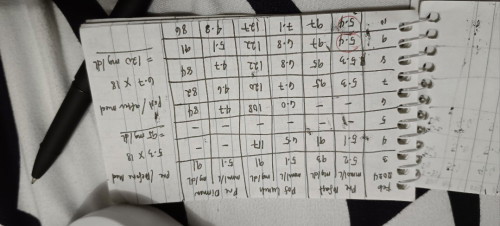 Feb 2024 Pre Bfast Post Lunch Pre Dinner
mmol/L mg/dL mmol/L mg/dL mmol/L mg/dL
3 5.2 93 5.1 91 5.1 91
4 5.1 91 6.5 117 - -
5 - - - - - -
6 - - 6.0 108 4.7 84
7 5.3 95 6.7 120 4.6 82
8 5.3 95 6.8 122 4.7 84
9 5.4 97 6.8 122 5.1 91
10 5.4 97 7.1 127 4.8 86
Pre/Before meal
5.3 x 18
= 95 mg/dL
Post/after meal
6.7 x 18
= 120 mg/dL